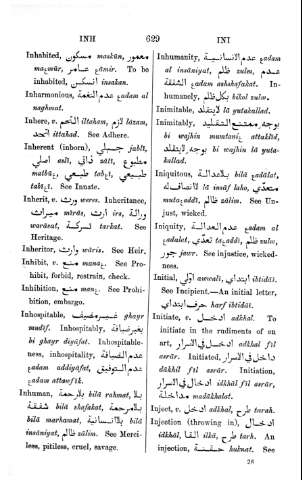 INH 629 INI
Inhabited, معمور maskūn, مسكون
maεmūr, عامر εāmir. To be
inhabited, سكن insakan.
Inharmonious, عدم النغمة εadam al
naghmat.
Inhere, v. التحم iltaham, لزم lāzam,
اتحد ittahad. See Adhere.
Inherent (inborn), جبلي jabīt,
اصلي aslī, ذاتي zātī, مطبوع
matbūε, طبيعي tabīεī,
tabεī. See Innate.
Inherit, v. ورث weres. Inheritance,
ميراث mīrās, ارث irs, وراثة
warāsat, تركة tarkat. See
Heritage.
Inheritor, وارث wāris. See Heir,
Inhibit, v. منع manaε. See Pro-
hibit, forbid, restrain, check.
Inhibition, منع menε. See Prohi-
bition, embargo.
Inhospitable, غير مضيف ghayr
mudīf. Inhospitably, بغير ضيافة
bi ghayr diyāfat. Inhospitable-
ness, inhospitality, عدم الضيافة
εadam addiyāfat, عدم التوفيق
εadam attanfīk.
Inhuman, بلا رحمة bilā rahmat, بلا
شفقة bilā shafakat, بلا مرحمة
bilā marhamat, بلا انسانية bilā
insāniyat, ظالم zālim. See Merci-
less, pitiless, cruel, savage.
Inhumanity, عدم الانسانية εadam
al insāniyat, ظلم zulm, عدم
الشفقة εadam ashshafakat. In-
humanely, بكل ظلم bikol zulm.
Inimitable, لا يتقلد lā yutakallad.
Inimitably, بوجه ممتنع التقليد
bi wajhin mumtaniε attaklīd,
بوجه لا يتقلد bi wajhin lā yuta-
kallad.
Iniquitous, بلا عدالة bilā εadālat,
لا انصاف له lā insāf laho, متعدي
mutaεaddī, ظالم zālim. See Un-
just, wicked.
Iniquity, عدم العدالة εadam al
εadalet, تعدي taεaddī, ظلم zulm,
جور jawr. See injustice, wicked-
ness.
Initial, اولي awwalī, ابتدائي ibtidāī.
See Incipient.—An initial letter,
حرف ابتدائي harf ibtidāī.
Initiate, v. ادخل adkhal. To
initiate in the rudiments of an
art, ادخل في الاسرار adkhal fīl
asrār. Initiated, داخل في الاسرار
dākhil fīl asrār. Initiation,
ادخال في الاسرار idkhāl fīl asrār,
مداخلة mudākhalat.
Inject, v. ادخل adkhal, طرح tarh.
Injection (throwing in), ادخال
idkhāl, القا ilkā, طرح tarh. An
injection, حقنة huknat. See
28